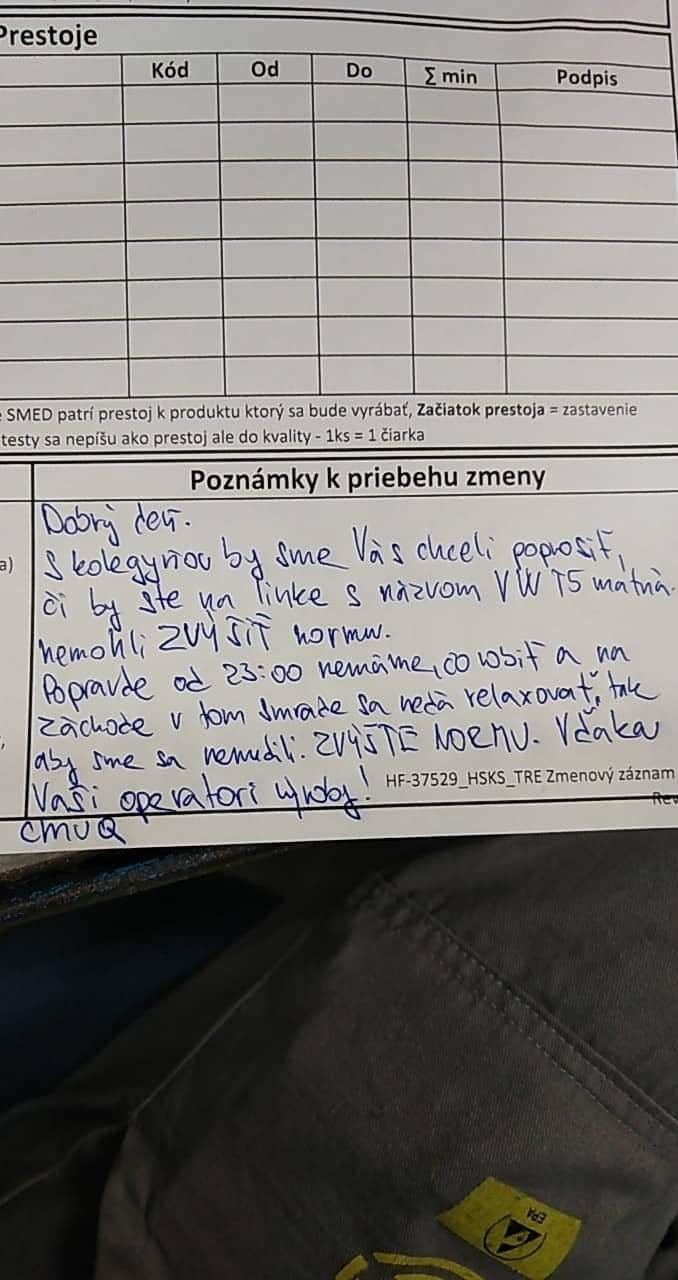 Prestoje
Kód Od Do ∑ min Podpis
SMED patrí prestoj k produktu ktorý sa bude vyrábať, Začiatok prestoja = zastavenie
testy sa nepíšu ako prestoj ale do kvality - 1ks = 1 čiarka
Poznámky k priebehu zmeny
a)
Dobrý deň.
S kolegyňou by sme Vás chceli poprosiť,
či by ste na linke s názvom VW T5 matná.
nemohli ZVÝŠIŤ normu.
Popravde od 23:00 nemáme, čo robiť a na
záchode v tom smrade sa nedá relaxovať, tak
aby sme sa nenudili. ZVÝŠTE NORMU. Vďaka
Vaši operatori výroby!
HF-37529_HSKS_TRE Zmenový záznam
Rev
CMUQ
EPA